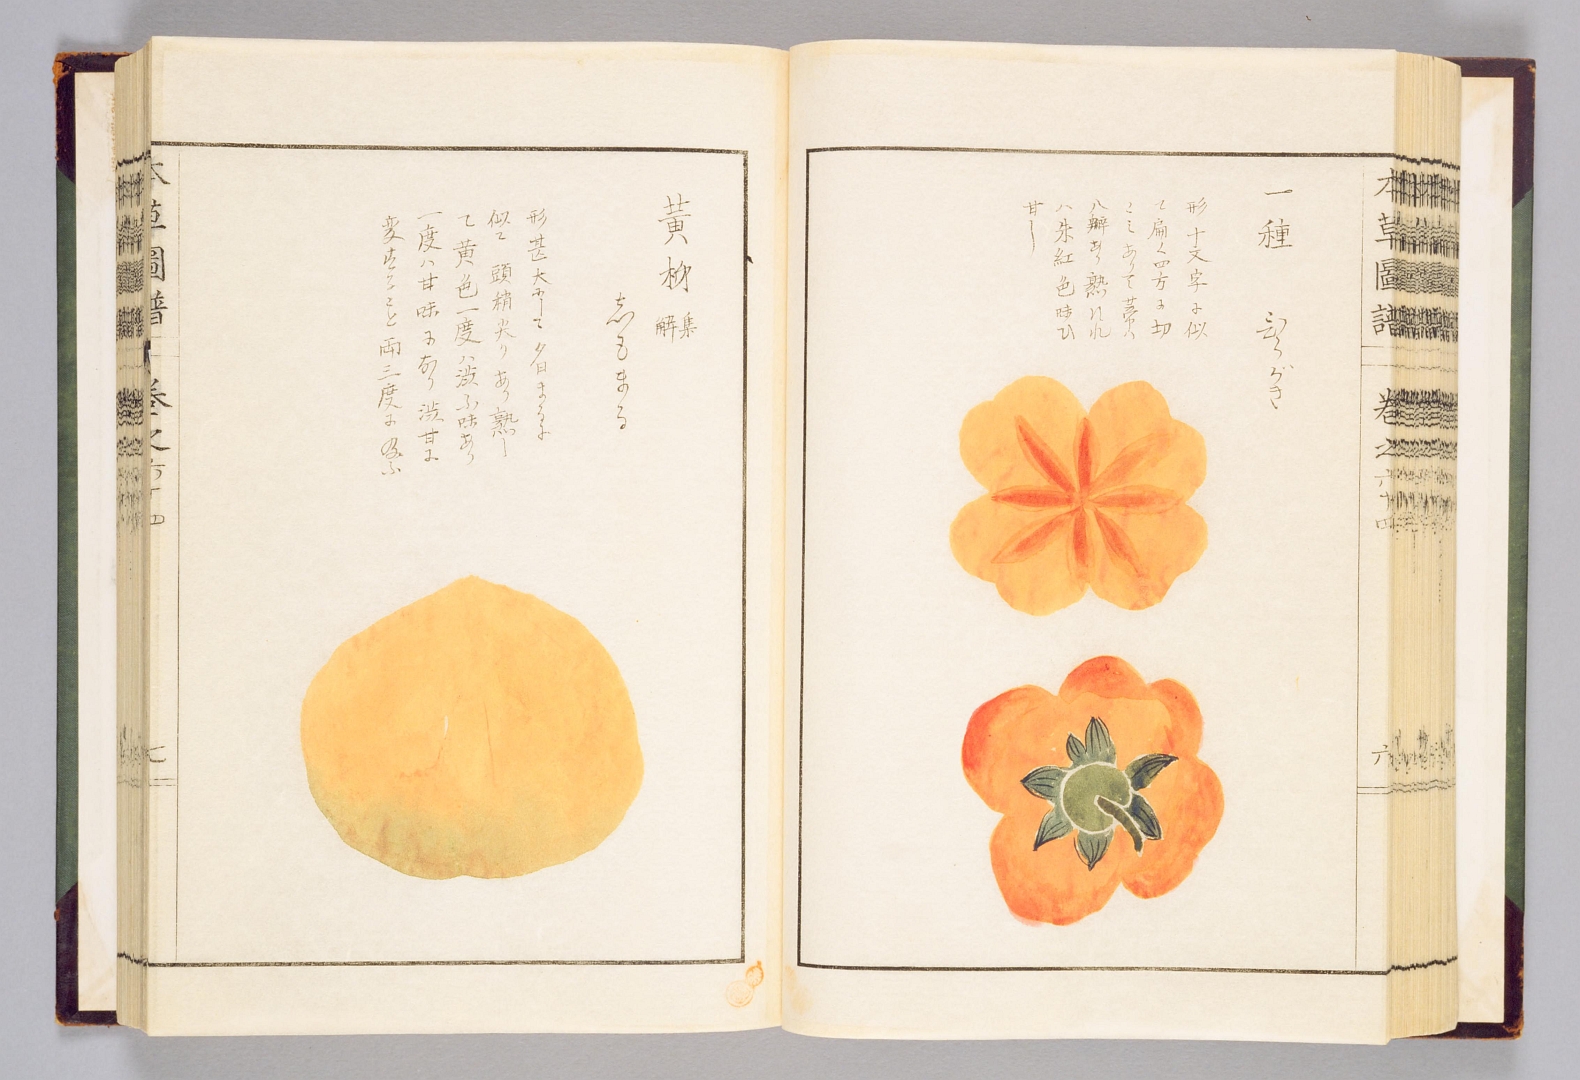 本草圖譜 卷之六十四
六
一種
形十文字に似
て扁く四方に切
こミありて蒂ハ
八瓣あり熟すれ
ハ朱紅色味ひ
甘し
黃柿 集解
志もまる
形甚大にして
似て頭稍尖りあり熟し
て黃色一度ハ渋ふ味あり
一度ハ甘味になり渋甘に
変することと両三度に及ふ
本草圖譜 卷之六十四
七